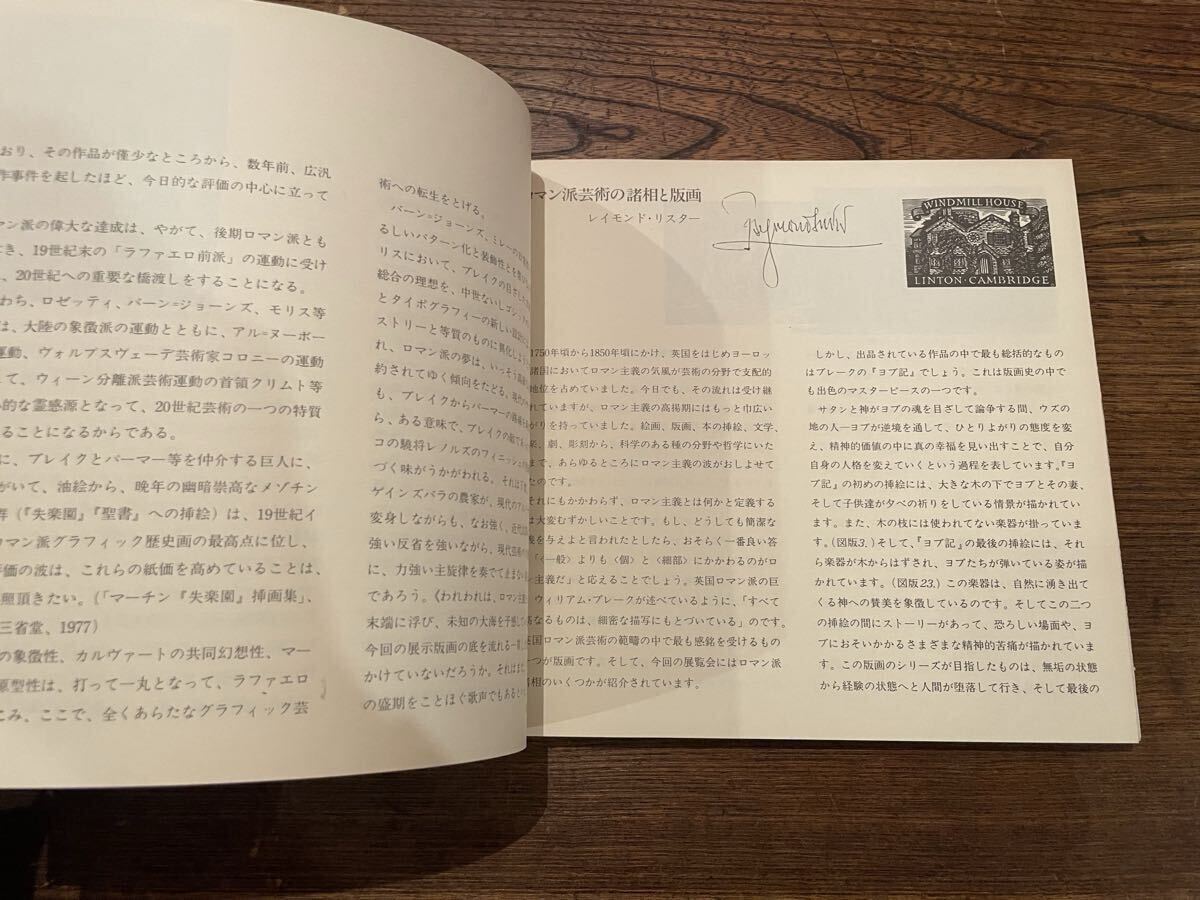 おり、その作品が僅少なところから、数年前、広汎
作事件を起したほど、今日的な評価の中心に立って
マン派の偉大な達成は、やがて、後期ロマン派とも
き、19世紀末の「ラファエロ前派」の運動に受け
、20世紀への重要な橋渡しをすることになる。
わち、ロゼッティ、バーン=ジョーンズ、モリス等
は、大陸の象徴派の運動とともに、アル=ヌーボー
運動、ヴォルプスヴェーデ芸術家コロニーの運動
て、ウィーン分離派芸術運動の首領クリムト等
的な霊感源となって、20世紀芸術の一つの特質
ることになるからである。
に、ブレイクとパーマー等を仲介する巨人に、
がいて、油絵から、晩年の幽暗崇高なメゾチン
群(『失楽園』『聖書』への挿絵)は、19世紀イ
ロマン派グラフィック歴史画の最高点に位し、
評価の波は、これらの紙価を高めていることは、
照頂きたい。(「マーチン『失楽園』挿画集」、
三省堂、1977)
の象徴性、カルヴァートの共同幻想性、マー
原型性は、打って一丸となって、ラファエロ
こみ、ここで、全くあらたなグラフィック芸
術への転生をとげる。
バーン=ジョーンズ、ミレーの
るしいパターン化と装飾性とを
リスにおいて、ブレイクの目ざした
総合の理想を、中世ないしゴシック
とタイポグラフィーの新しい
ストリーと等質のものに異化し
れ、ロマン派の夢は、いっそう
約されてゆく傾向をたどる。
も、ブレイクからパーマーの
ら、ある意味で、ブレイクの敵であ
コの驍将レノルズのフィニッシュ
づく味がうかがわれる。それは
ゲインズバラの農家が、現代の
変身しながらも、なお強く、近代
強い反省を強いながら、現代芸術
に、力強い主旋律を奏でて止まない
であろう。《われわれは、ロマン主
末端に浮び、未知の大海を予感し
今回の展示版画の底を流れる一
かけていないだろうか。それはまた
の盛期をことほぐ歌声でもあると
ロマン派芸術の諸相と版画
レイモンド・リスター
WINDMILL HOUSE
LINTON・CAMBRIDGE
1750年頃から1850年頃にかけ、英国をはじめヨーロッ
諸国においてロマン主義の気風が芸術の分野で支配的
地位を占めていました。今日でも、その流れは受け継
れていますが、ロマン主義の高揚期にはもっと巾広い
がりを持っていました。絵画、版画、本の挿絵、文学、
、劇、彫刻から、科学のある種の分野や哲学にいた
まで、あらゆるところにロマン主義の波がおしよせて
たのです。
それにもかかわらず、ロマン主義とは何かと定義する
は大変むずかしいことです。もし、どうしても簡潔な
義を与えよと言われたとしたら、おそらく一番良い答
「〈一般〉よりも〈個〉と〈細部〉にかかわるのがロ
主義だ」と応えることでしょう。英国ロマン派の巨
ウィリアム・ブレークが述べているように、「すべて
なるものは、細密な描写にもとづいている」のです。
英国ロマン派芸術の範疇の中で最も感銘を受けるもの
一つが版画です。そして、今回の展覧会にはロマン派
相のいくつかが紹介されています。
しかし、出品されている作品の中で最も総括的なもの
はブレークの『ヨブ記』でしょう。これは版画史の中で
も出色のマスターピースの一つです。
サタンと神がヨブの魂を目ざして論争する間、ウズの
地の人―ヨブが逆境を通して、ひとりよがりの態度を変
え、精神的価値の中に真の幸福を見い出すことで、自分
自身の人格を変えていくという過程を表しています。『ヨ
ブ記』の初めの挿絵には、大きな木の下でヨブとその妻、
そして子供達が夕べの祈りをしている情景が描かれてい
ます。また、木の枝には使われてない楽器が掛っていま
す。(図版3.) そして、『ヨブ記』の最後の挿絵には、それ
ら楽器が木からはずされ、ヨブたちが弾いている姿が描
かれています。(図版23.) この楽器は、自然に湧き出て
くる神への賛美を象徴しているのです。そしてこの二つ
の挿絵の間にストーリーがあって、恐ろしい場面や、ヨ
ブにおそいかかるさまざまな精神的苦痛が描かれていま
す。この版画のシリーズが目指したものは、無垢の状態
から経験の状態へと人間が堕落して行き、そして最後の